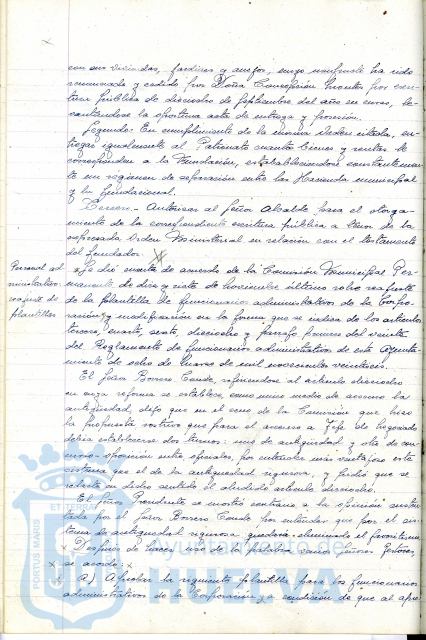 con sus viviendas, jardines y anejos, cuyo usufructo ha sido
renunciado y cedido por Doña Concepción Montes por escri-
tura pública de dieciocho de Septiembre del año en curso, le-
vantándose la oportuna acta de entrega y posesión.
Segundo: En cumplimiento de la misma Orden citada, en-
tregar igualmente al Patronato cuantos bienes y rentas le
correspondan a la Fundación, estableciéndose constantemen-
te un régimen de separación entre las Hacienda municipal
y la fundacional.
Tercero.- Autorizar al Señor Alcalde para el otorga-
miento de la correspondiente escritura pública a tenor de la
expresada Orden Ministerial en relación con el testamento
del fundador.
Personal ad-
ministrativo
reajuste de
plantillas
Se dió cuenta de acuerdo de la Comisión Municipal Per-
manente de diez y siete de Noviembre último sobre reajuste
de la plantilla de funcionarios administrativos de la Corpo-
ración y modificación en la forma que se indica de los artículos
tercero, cuarto, sexto, dieciocho y párrafo primero del veinte
del Reglamento de funcionarios administrativos de este Ayunta-
miento de ocho de Marzo de mil novecientos veinteseis.
El Señor Borrero Conde, refiriéndose al artículo dieciocho
en cuya reforma se establece, como único medio de ascenso la
antigüedad, dijo que en el seno de la Comisión que hizo
la propuesta sostuvo que para el ascenso a Jefe de Negociado
debía establecerse dos turnos: uno de antigüedad y otro de con-
curso-oposición entre oficiales, por entender más ventajoso este
sistema que el de la antigüedad rigurosa, y pidió que se
redacte en dicho sentido el aludido artículo dieciocho.
El Señor Presidente se mostró contrario a la opinión susten-
tada por el Señor Borrero Conde por entender que por el sis-
tema de antigüedad rigurosa quedaría eliminado el favoritismo.
Después de hacer uso de la palabra varios señores Gestores,
se acordó:
A) Aprobar la siguiente plantilla para los funcionarios
administrativos de la Corporación, a condición de que al apro-
PORTUS MARIS
ET TERRÆ
Ayuntamiento de
HUELVA